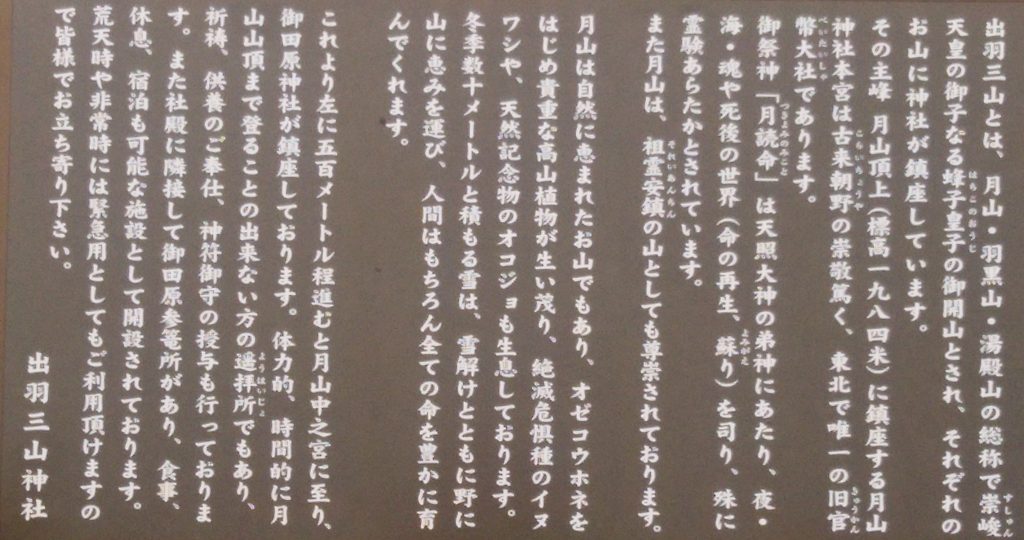 出羽三山とは、月山・羽黒山・湯殿山の総称で崇峻
天皇の御子なる蜂子皇子の御開山とされ、それぞれの
お山に神社が鎮座しています。
その主峰 月山頂上（標高一九八四米）に鎮座する月山
神社本宮は古来朝野の崇敬篤く、東北で唯一の旧官
幣大社であります。
御祭神「月読命」は天照大神の弟神にあたり、夜・
海・魂や死後の世界（命の再生、蘇り）を司り、殊に
霊験あらたかとされています。
また月山は、祖霊安鎮の山としても尊崇されております。
月山は自然に恵まれたお山でもあり、オゼコウホネを
はじめ貴重な高山植物が生い茂り、絶滅危惧種のイヌ
ワシや、天然記念物のオコジョも生息しております。
冬季数十メートルと積もる雪は、雪解けとともに野に
山に恵みを運び、人間はもちろん全ての命を豊かに育
んでくれます。
これより左に五百メートル程進むと月山中之宮に至り、
御田原神社が鎮座しております。体力的、時間的に月
山山頂まで登ることの出来ない方の遥拝所でもあり、
祈祷、供養のご奉仕、神符御守の授与も行っておりま
す。また社殿に隣接して御田原参篭所があり、食事、
休息、宿泊も可能な施設として開設されております。
荒天時や非常時には緊急用としてもご利用頂けますの
で皆様でお立ち寄り下さい。
出羽三山神社